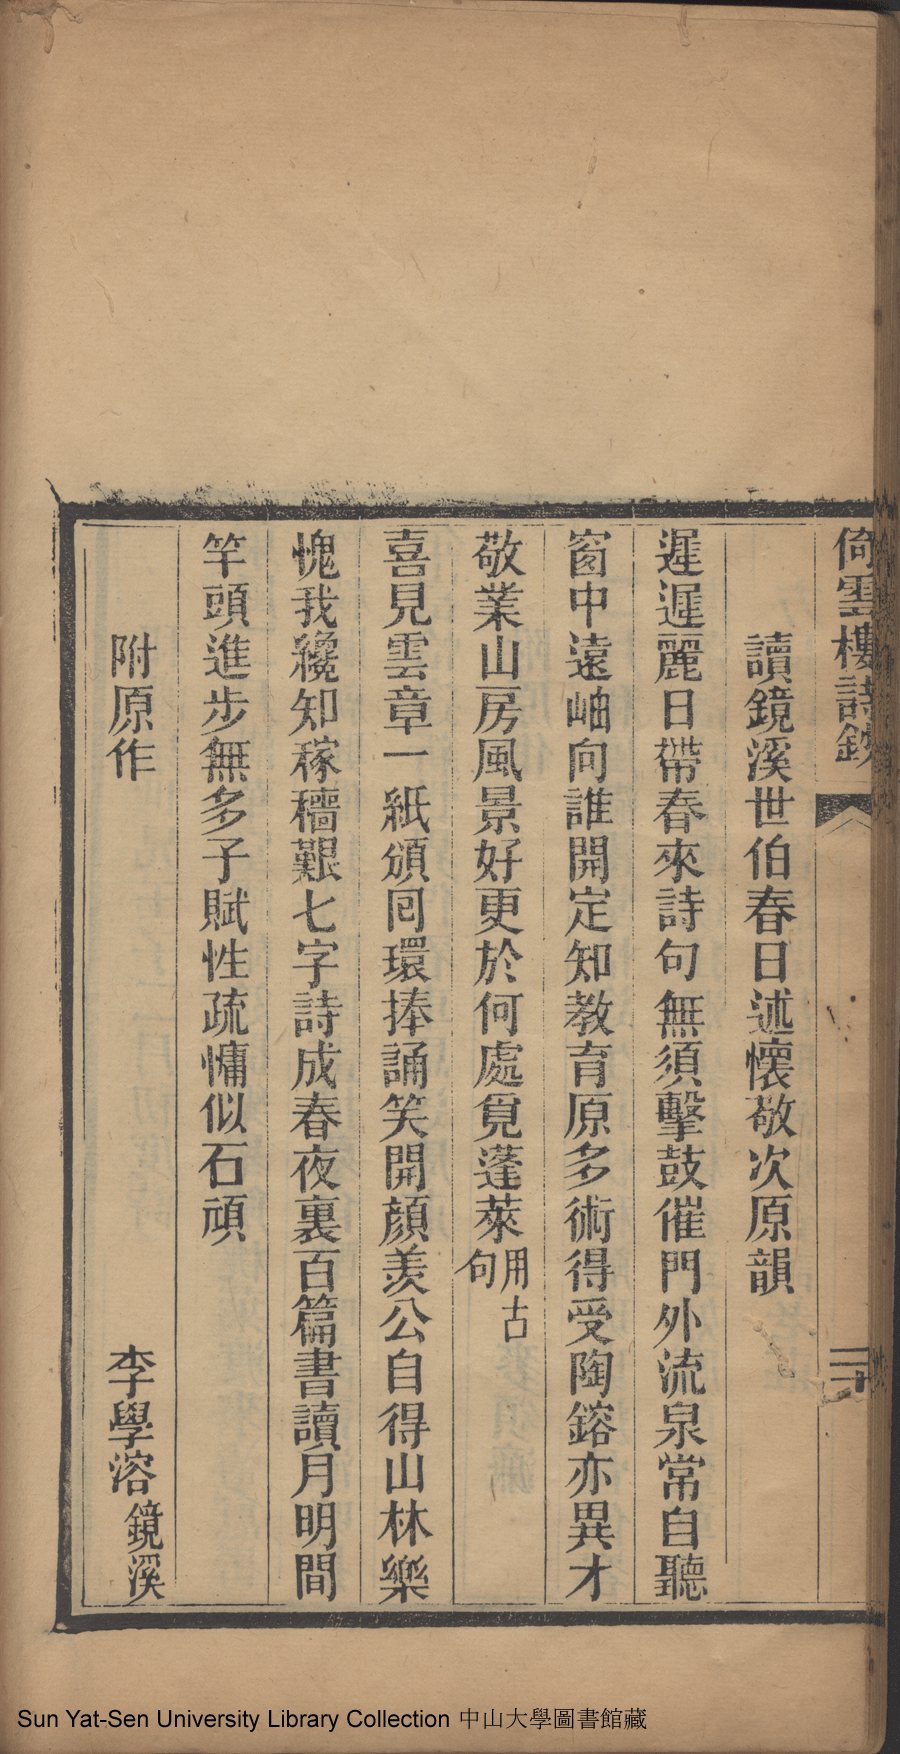 倚雲樓詩鈔
二十
讀鏡溪世伯春日述懷敬次原韻
遲遲麗日帶春來詩句無須擊鼓催門外流泉常自聽
窗中遠岫向誰開定知教育原多術得受陶鎔亦異才
敬業山房風景好更於何處覓蓬萊用古句
喜見雲章一紙頒囘環捧誦笑開顔羨公自得山林樂
愧我纔知稼穡艱七字詩成春夜裏百篇書讀月明間
竿頭進步無多子賦性疏慵似石頑
附原作 李學溶鏡溪
Sun Yat-Sen University Library Collection 中山大學圖書館藏